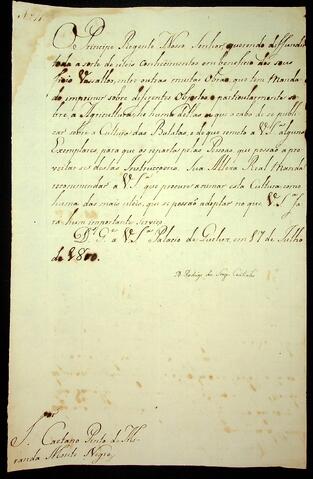 O Principe Regente Nosso Senhor, querendo diffundir
toda a sorte de uteis conhecimentos em beneficio dos seus
fieis Vassallos, entre outras muitas Obras, que tem Manda
do imprimir sobre differentes Objectos, e particularmente so
bre a Agricultura, he huma dellas a que acaba de se publi
car sobre a Cultura das Batatas, e de que remeto a V.S.ª alguns
Exemplares, para que os reparta pelas Pessoas, que possão a pro
veitar se destas Instrucçoens. Sua Alteza Real Manda
recommendar a V.S.ª que procure animar esta Cultura como
huma das mais uteis, que se possão adoptar no que V.S.ª fa
ra hum importante serviço.
D.s G.e a V.S.ª Palacio de Queluz em 17 de Julho
de 1800.
D. Rodrigo de Souza Coutinho
S.r Caetano Pinto de Mi
randa Monte Negro